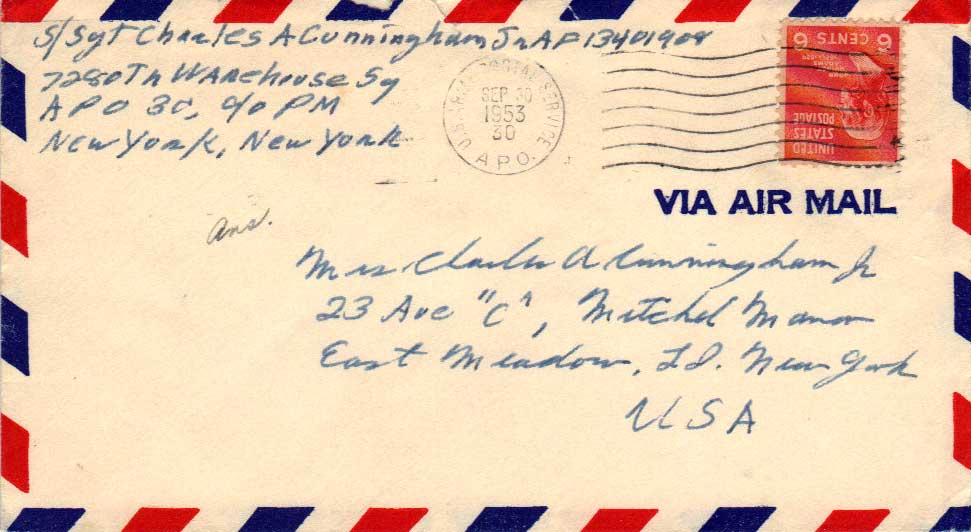 S/Sgt Charles A Cunningham Jr AF 13401908
7280Th WArehouse Sq
APO 30, c/o PM
New York, New York
U.S. POSTAL SERVICE
SEP 30
1953
30
A P O.
6 CENTS 6
JOHN
ADAMS
UNITED
STATES
POSTAGE
VIA AIR MAIL
Ans.
Mrs Charles A Cunningham Jr
23 Ave "C", Mitchel Manor
East Meadow, L I. New York
USA